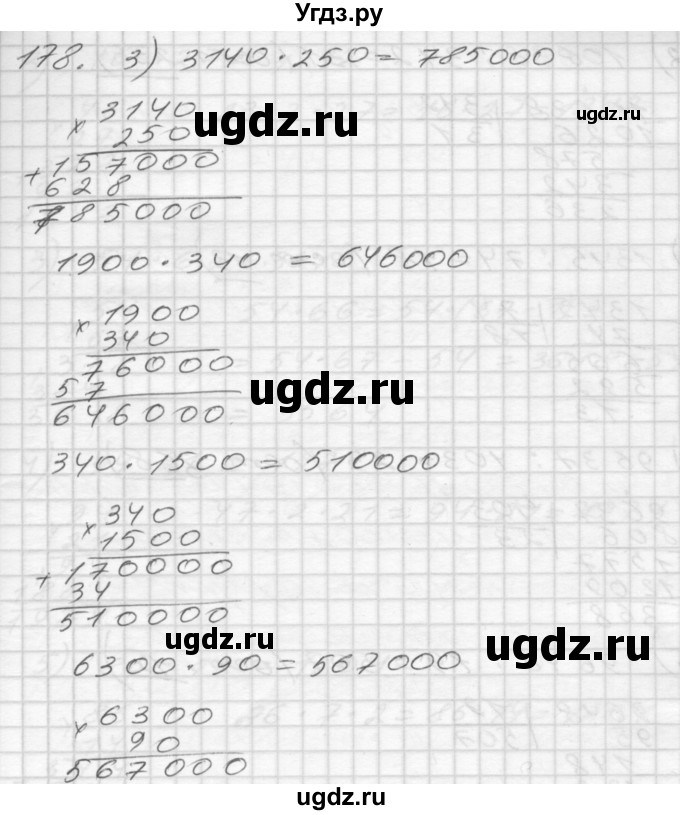 Угдз.ру
178. 3) 3140 · 250 = 785000
× 3140
250
ugdz.ru
+ 157000
628
785000
1900 · 340 = 646000
× 1900
340
76000
57
ugdz.ru
646000
340 · 1500 = 510000
× 340
1500
+ 170000
34
510000
ugdz.ru
ugdz.ru
6300 · 90 = 567000
× 6300
90
567000
ugdz.ru